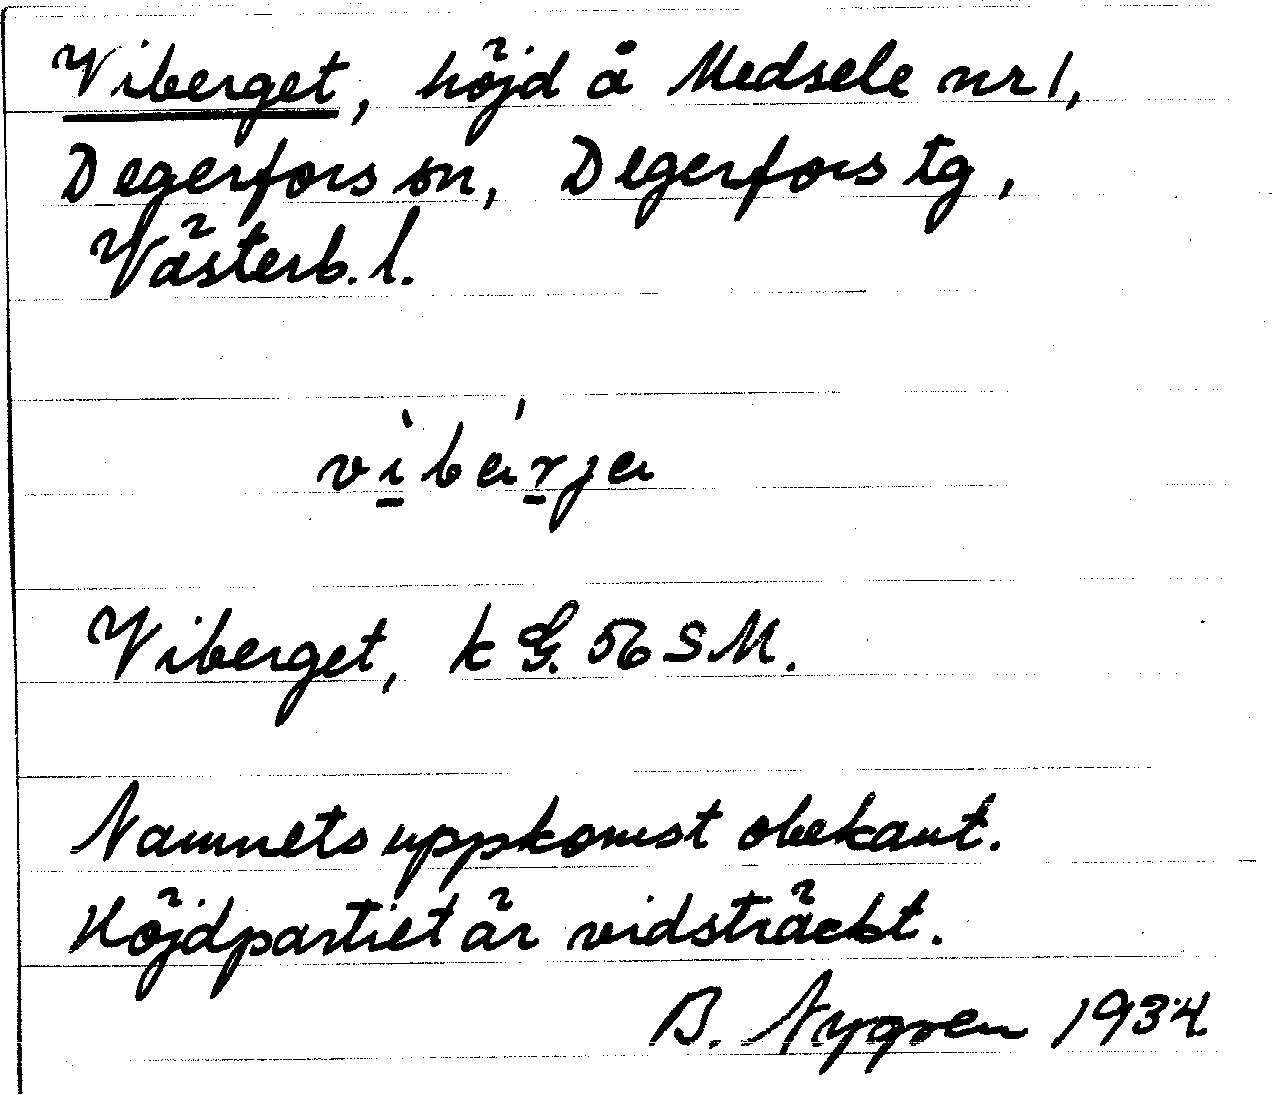 Viberget, höjd å Medsele nr 1,
Degerfors sn, Degerfors tg,
Västerb. l.
vìbárja
Viberget, k G. 56 SM.
Namnets uppkomst obekant.
Höjdpartiet är vidsträckt.
B. Nygren 1934